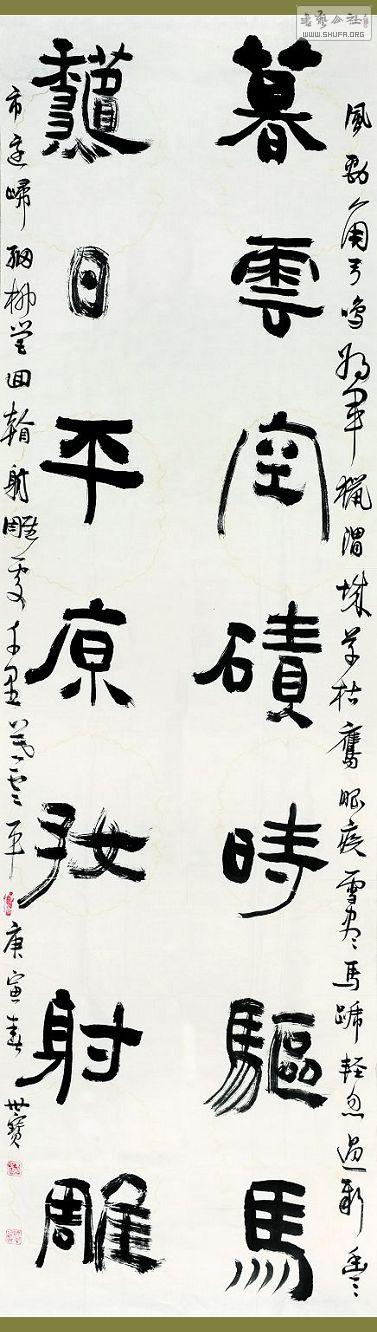 書藝公社
WWW.SHUFA.ORG
風勁角弓鳴將軍獵渭城草枯鷹眼疾雪盡馬蹄輕忽過新豐
暮雲空磧時驅馬
龝日平原好射雕
市還歸細柳營回看射雕處千里暮雲平
庚寅春世寶